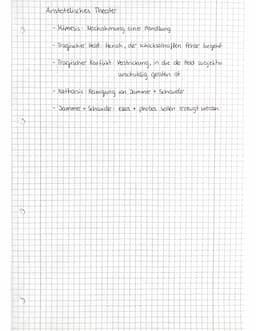 Aristotelisches Theater
- Mimesis: Nachahmung einer Handlung
- Tragischer Held: Mensch, der schicksalhaften Fehler begeht
- Tragischer Konflikt: Verstrickung, in die der Held subjektiv
unschuldig geraten ist
- Katharsis: Reinigung von Jammer + Schauder
- Jammer + Schauder: eleos + phobos sollen erzeugt werden